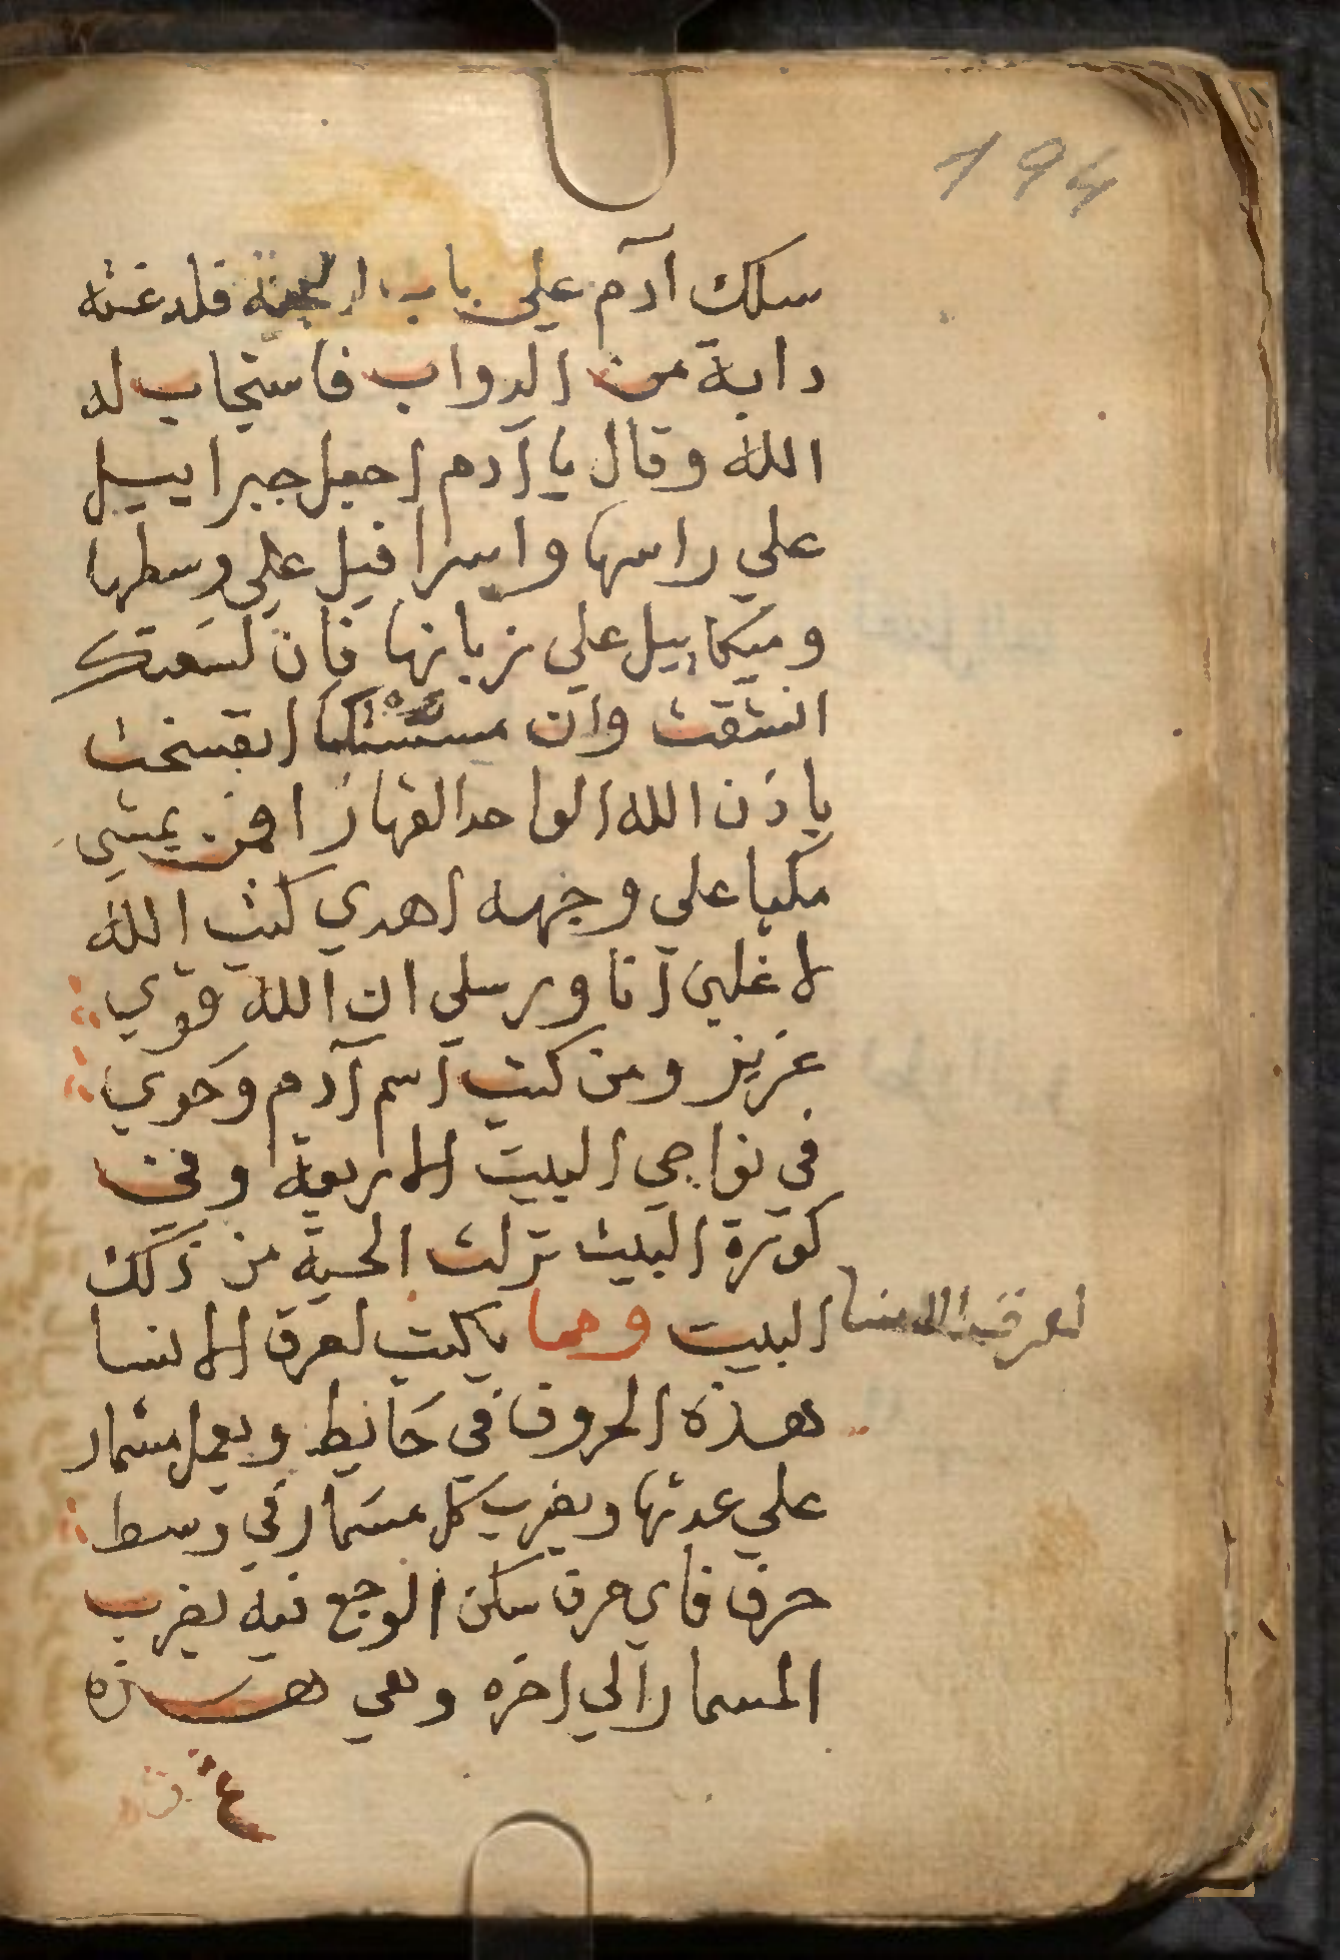 194
سلك آدم على باب الجنة فلدغته
دابة من الدواب فاستجاب له
الله وقال يا آدم اجعل جبراييل
علي راسها واسرافيل علي وسطها
وميكاييل علي زبانها فان لسعتك
انشقت وان مستك اتفسخت
باذن الله الواحد القهار افمن يمشي
مكبا علي وجهه اهدي كتب الله
لاغلبن انا ورسلي ان الله قوي
عزيز ومن كتب اسم آدم وحوي
في نواحي البيت الاربعة وفي
البيت نزلت الحية من ذلك
البيت ومما يكتب لعرق الانسا
لعرق الانسا
هذه الحروف في حايط ويعمل مسمار
علي عدتها ويضرب كل مسمار في وسط
حرف فاي حرف سكن الوجع فيه يضرب
المسمار الي اخره وهي هذه